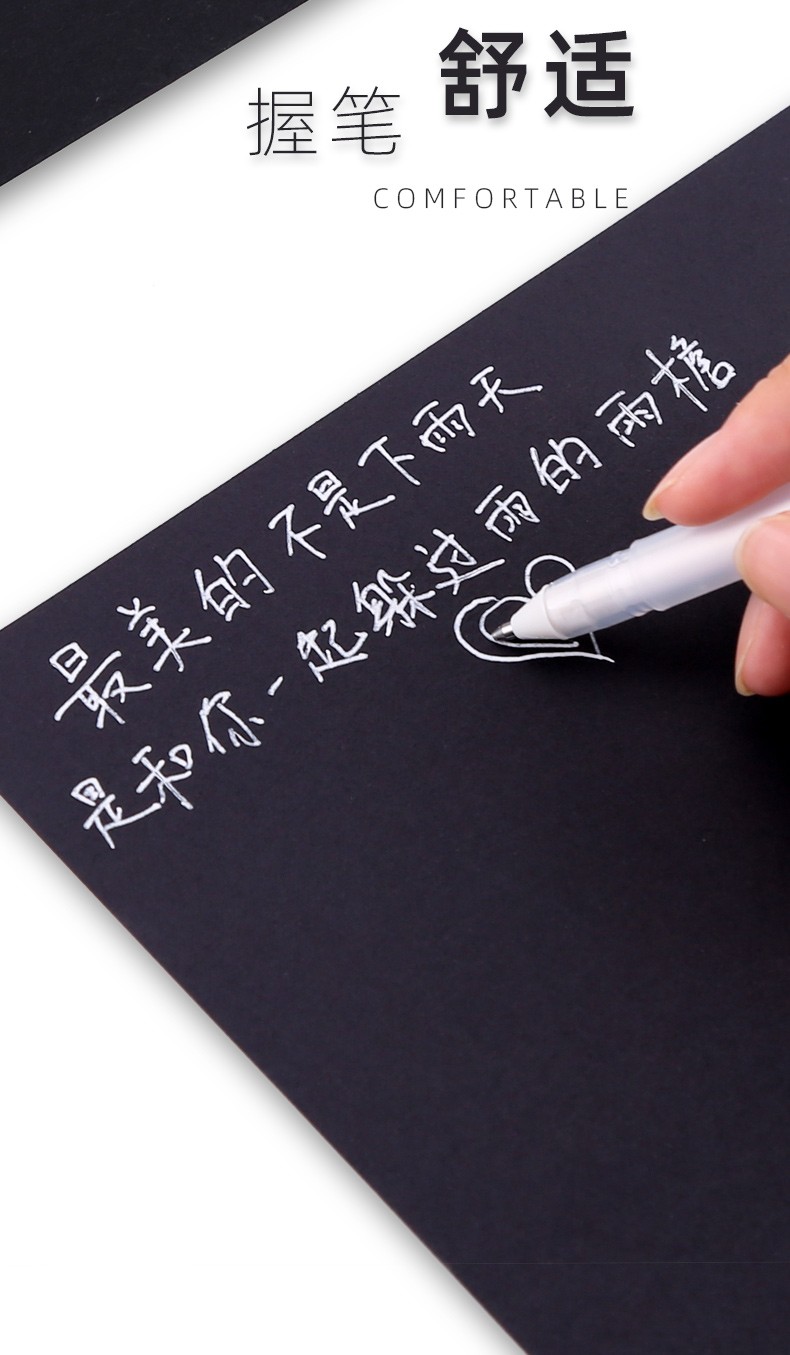 握笔 舒适
COMFORTABLE
最美的不是下雨天
是和你一起躲过雨的雨檐